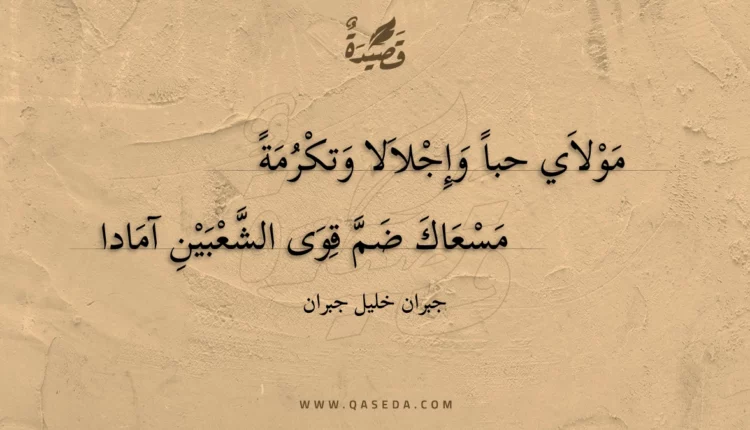 قَصِيْدَةٌ
مَوْلاَي حباً وَإِجْلاَلا وَتكْرُمَةً
مَسْعَاكَ ضَمَّ قِوَى الشَّعْبَيْنِ آمَادا
جبران خليل جبران
WWW.QASEDA.COM